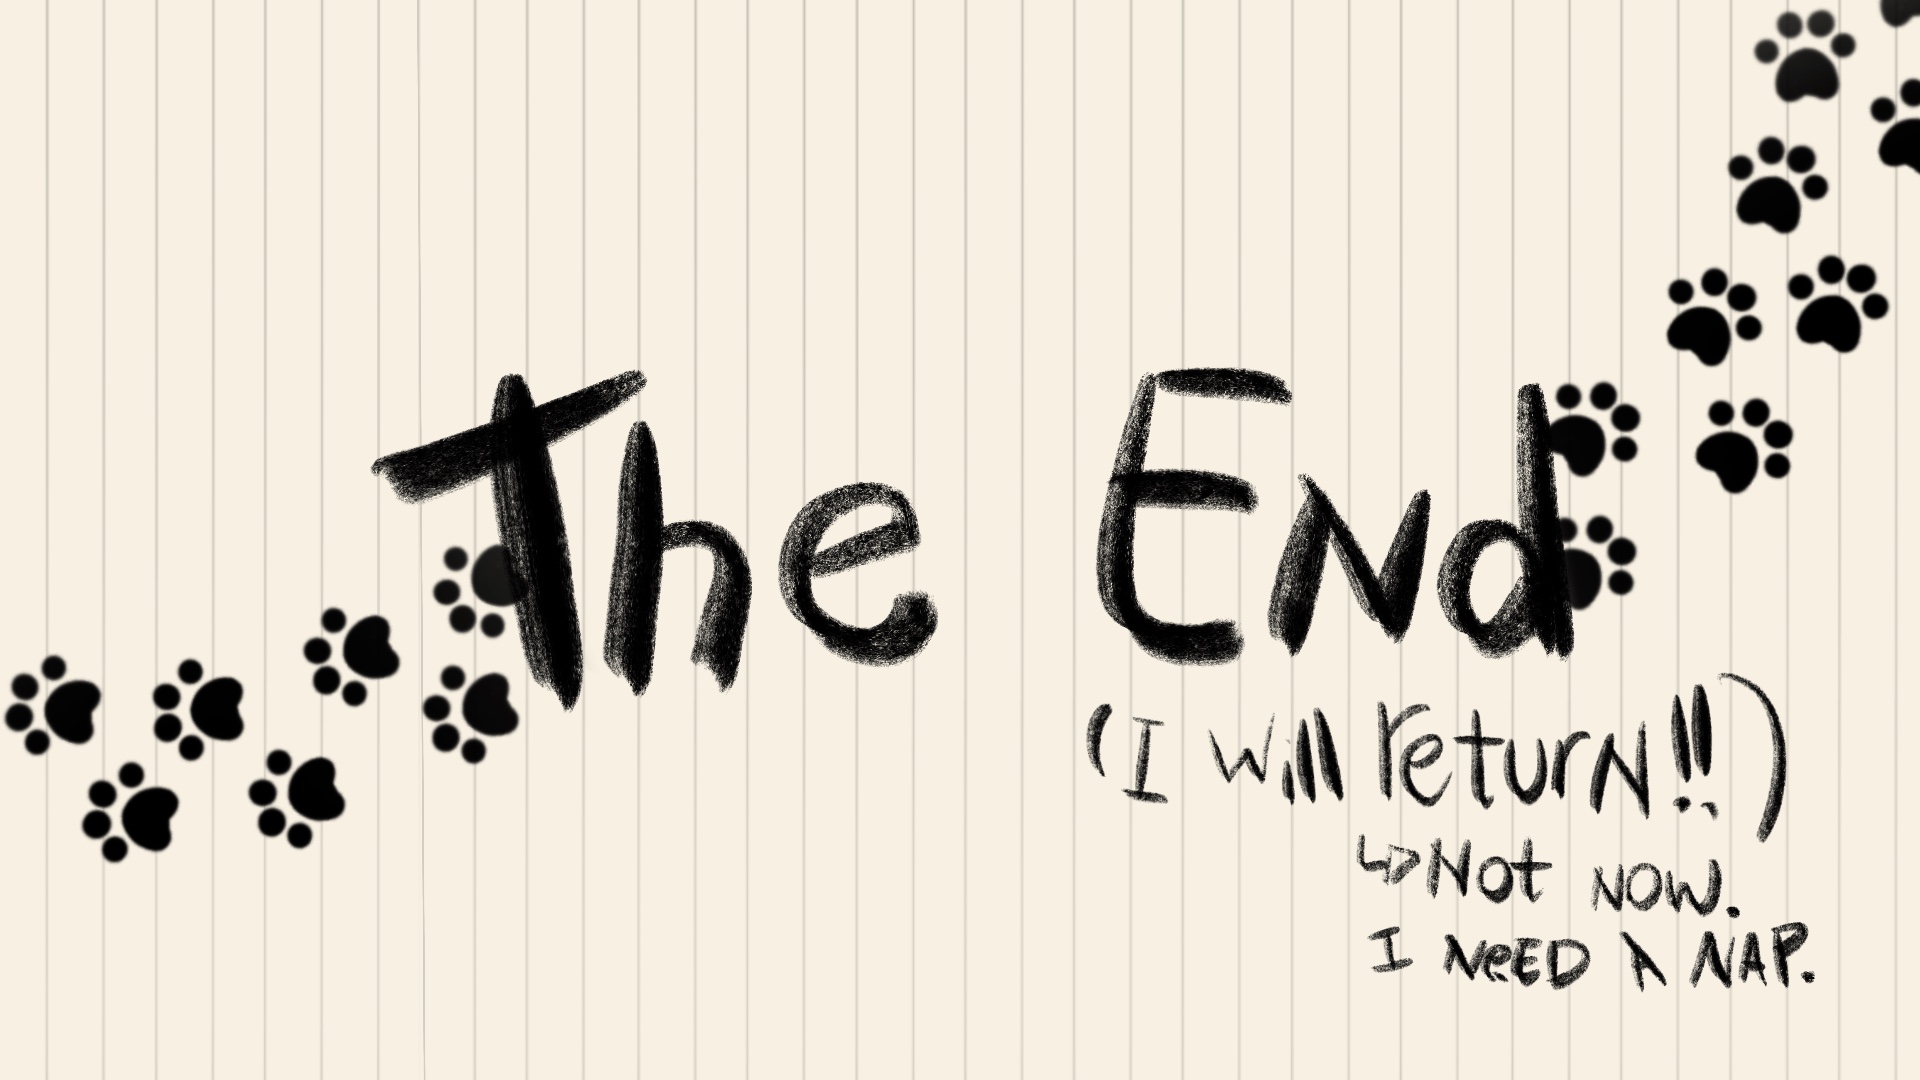 The End
(I will return!!)
↳Not now.
I NeED A NAP.